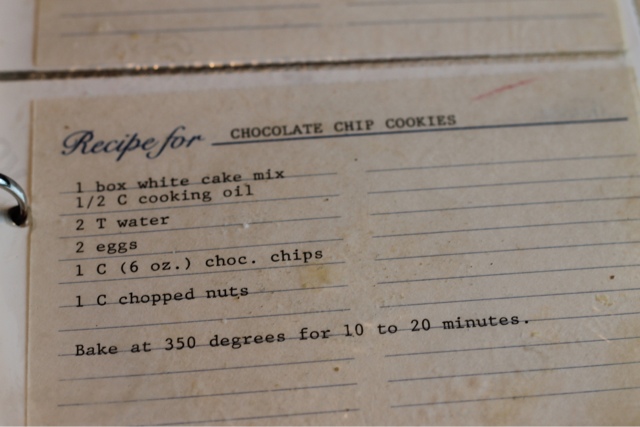 Recipe for CHOCOLATE CHIP COOKIES
1 box white cake mix
1/2 C cooking oil
2 T water
2 eggs
1 C (6 oz.) choc. chips
1 C chopped nuts
Bake at 350 degrees for 10 to 20 minutes.